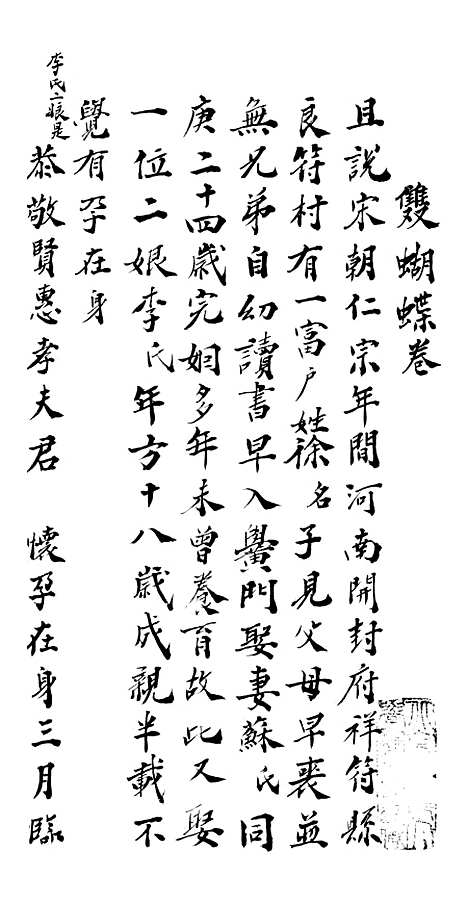 雙蝴蝶卷
且說宋朝仁宗年間河南開封府祥符縣
良符村有一富户姓徐名子見父母早喪並
無兄弟自幼讀書早入黌門娶妻蘇氏同
庚二十四歲完姻多年未曾養育故此又娶
一位二娘李氏年方十八歲成親半載不
覺有孕在身
李氏二娘是恭敬賢惠孝夫君 懷孕在身三月臨